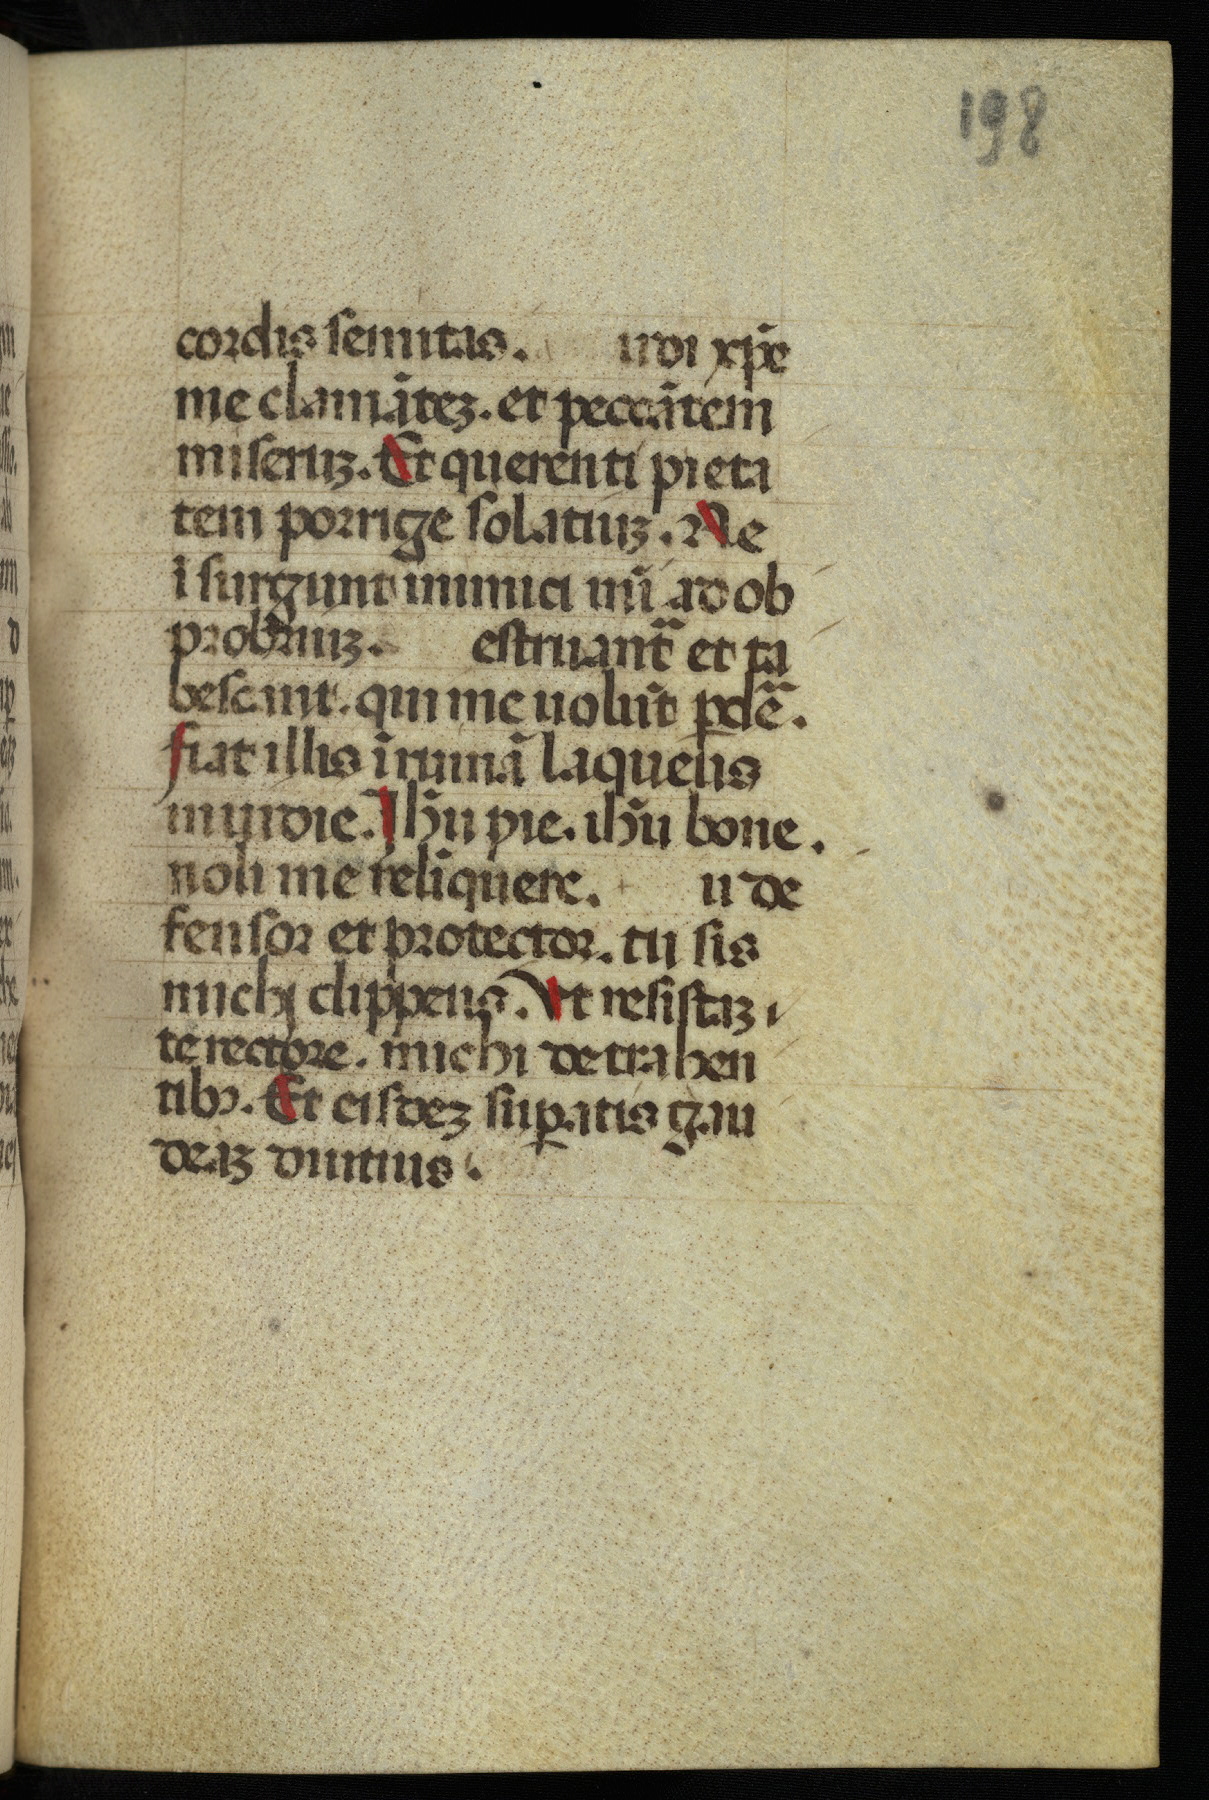 198
cordis semitas. udi xp̄e
me clamātez. et peccātem
miseruz. Et querenti pieta
tem porrige solatiuz. Ne
ī surgunt inimici mī ad ob
probriuz. estruant̃ et ta
bescant. qui me uolūt pdẽ.
fiat illis ī ruinā laqueus
inuidie. Ihũ pie. ihũ bone.
noli me reliquere. u de
fensor et protector. tu sis
michj clippeus. Vt resistaz i
te rectore. michi detrahen
tibꝫ. Et eisdez suꝑatis gau
deaz diutius.